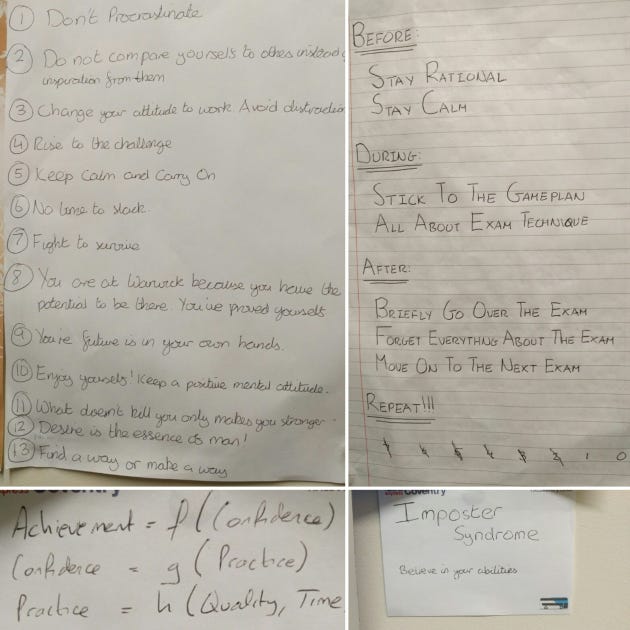 ① Don't Procrastinate
② Do not compare yourselfs to others instead
inspiration from them
③ Change your attitude to work. Avoid distraction
④ Rise to the challenge
⑤ Keep Calm and Carry On
⑥ No time to slack.
⑦ Fight to survive
⑧ You are at Warwick because you have the
potential to be there. You've proved yourself
⑨ You're future is in your own hands.
⑩ Enjoy yourselfs! Keep a positive mental attitude.
⑪ What doesn't kill you only makes you stronger.
⑫ Desire is the essence of man!
⑬ Find a way or make a way
BEFORE:
STAY RATIONAL
STAY CALM
DURING:
STICK TO THE GAMEPLAN
ALL ABOUT EXAM TECHNIQUE
AFTER:
BRIEFLY GO OVER THE EXAM
FORGET EVERYTHNG ABOUT THE EXAM
MOVE ON TO THE NEXT EXAM
REPEAT!!!
1 0
Coventry
Achievement = f(Confidence)
Confidence = g(Practice)
Practice = h(Quality, Time
Coventry
Imposter
Syndrome
Believe in your abilities